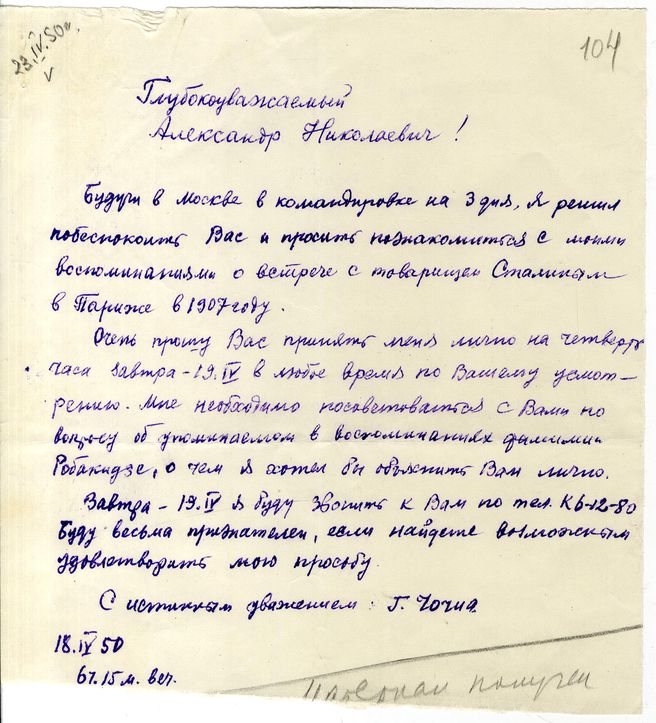 23.IV.50г.
104
Глубокоуважаемый
Александр Николаевич!
Будучи в Москве в командировке на 3 дня, я решил
побеспокоить Вас и просить познакомиться с моими
воспоминаниями о встрече с товарищем Сталиным
в Париже в 1907 году.
Очень прошу Вас принять меня лично на четверть
часа завтра - 19.IV в любое время по Вашему усмот-
рению. Мне необходимо посоветоваться с Вами по
вопросу об упоминаемом в воспоминаниях фамилии
Робакидзе, о чем я хотел бы объяснить Вам лично.
Завтра - 19.IV я буду звонить к Вам по тел. К6-12-80
Буду весьма признателен, если найдете возможным
удовлетворить мою просьбу.
С истинным уважением: Г. Чочиа
18.IV 50
6ч.15м. веч.
получен